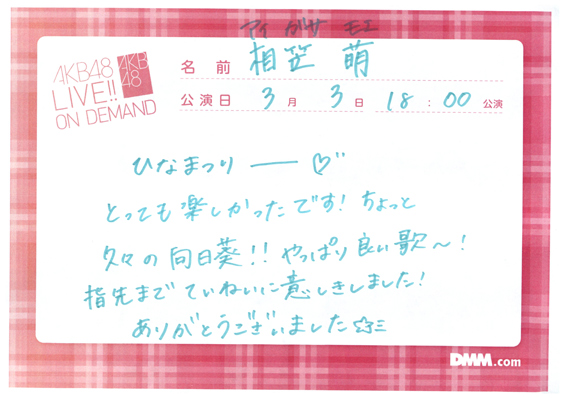 AKB48
LIVE!!
ON DEMAND
AKB
48
アイ がサ モエ
名 前 相笠 萌
公演日 3月 3日 18:00 公演
ひなまつり ―― ♡"
とっても楽しかったです! ちょっと
久々の向日葵!! やっぱり良い歌〜!
指先までていねいに意しきしました!
ありがとうございました☆彡
DMM.com